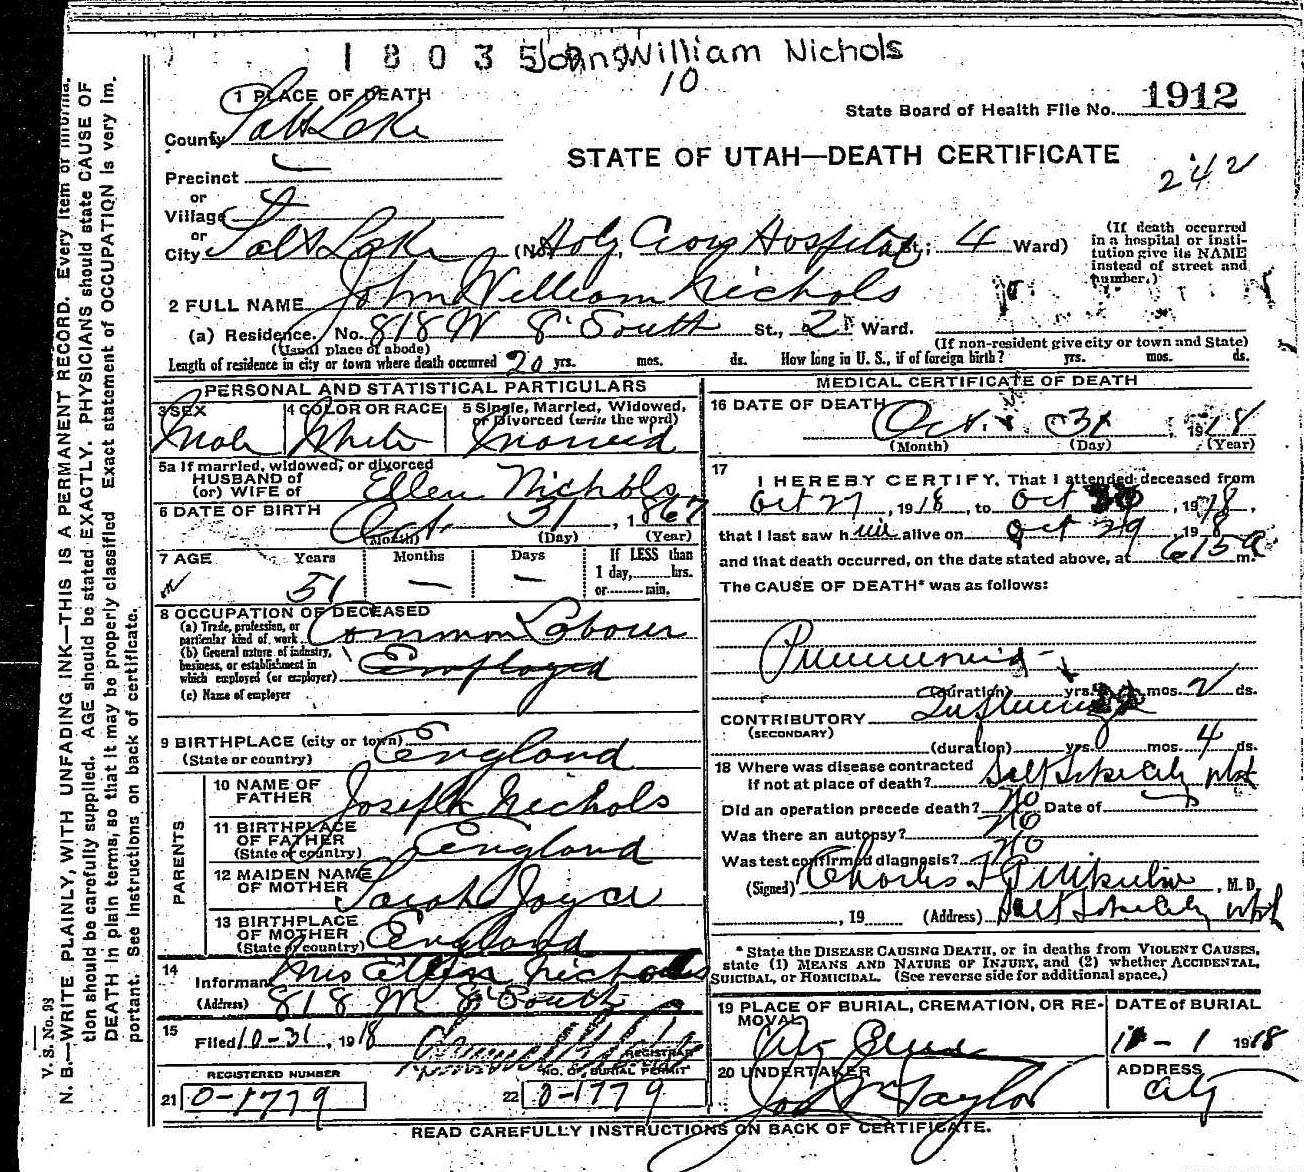 1 8 0 3 5 John William Nichols
10
1 PLACE OF DEATH
State Board of Health File No. 1912
County Salt Lake
STATE OF UTAH—DEATH CERTIFICATE
242
Precinct
or
Village
or
City Salt Lake (No. Holy Cross Hospital St.; 4 Ward)
(If death occurred
in a hospital or insti-
tution give its NAME
instead of street and
number.)
2 FULL NAME John William Nichols
(a) Residence. No. 818 W 8 South St., 2 Ward.
(Usual place of abode)
(If non-resident give city or town and State)
Length of residence in city or town where death occurred 20 yrs. mos. ds. How long in U. S., if of foreign birth? yrs. mos. ds.
PERSONAL AND STATISTICAL PARTICULARS
3 SEX
Male
4 COLOR OR RACE
White
5 Single, Married, Widowed,
or Divorced (write the word)
Married
5a If married, widowed, or divorced
HUSBAND of
(or) WIFE of Ellen Nichols
6 DATE OF BIRTH
Oct 31, 1867
(Month) (Day) (Year)
7 AGE Years Months Days
If LESS than
1 day, hrs.
or min.
51 — —
8 OCCUPATION OF DECEASED
(a) Trade, profession, or
particular kind of work Common Labour
(b) General nature of industry,
business, or establishment in
which employed (or employer) Employed
(c) Name of employer
9 BIRTHPLACE (city or town)
(State or country) England
PARENTS
10 NAME OF
FATHER Joseph Nichols
11 BIRTHPLACE
OF FATHER
(State or country) England
12 MAIDEN NAME
OF MOTHER Sarah Joyce
13 BIRTHPLACE
OF MOTHER
(State or country) England
14
Informant Mrs Ellen Nichols
(Address) 818 W 8 South
15
Filed 10-31, 1918
REGISTRAR
REGISTERED NUMBER
21 0-1779
NO. OF BURIAL PERMIT
22 0-1779
MEDICAL CERTIFICATE OF DEATH
16 DATE OF DEATH
Oct. 31, 1918
(Month) (Day) (Year)
17
I HEREBY CERTIFY, That I attended deceased from
Oct 27, 1918, to Oct 30, 1918,
that I last saw him alive on Oct 29 1918
and that death occurred, on the date stated above, at 615 a m.
The CAUSE OF DEATH* was as follows:
Pneumonia
(duration) yrs. mos. 2 ds.
CONTRIBUTORY Influenza
(SECONDARY)
(duration) yrs. mos. 4 ds.
18 Where was disease contracted
if not at place of death? Salt Lake City Utah
Did an operation precede death? No Date of
Was there an autopsy? No
Was test confirmed diagnosis? No
(Signed) Charles F, M. D.
, 19 (Address) Salt Lake City Utah
* State the DISEASE CAUSING DEATH, or in deaths from VIOLENT CAUSES,
state (1) MEANS AND NATURE OF INJURY, and (2) whether ACCIDENTAL,
SUICIDAL, or HOMICIDAL. (See reverse side for additional space.)
19 PLACE OF BURIAL, CREMATION, OR RE-
MOVAL
City
DATE of BURIAL
11 - 1 1918
20 UNDERTAKER
Jos Wm Taylor
ADDRESS
City
READ CAREFULLY INSTRUCTIONS ON BACK OF CERTIFICATE.
V. S. No. 93
N. B.—WRITE PLAINLY, WITH UNFADING INK—THIS IS A PERMANENT RECORD. Every item of informa-
tion should be carefully supplied. AGE should be stated EXACTLY. PHYSICIANS should state CAUSE OF
DEATH in plain terms, so that it may be properly classified. Exact statement of OCCUPATION is very im-
portant. See instructions on back of certificate.